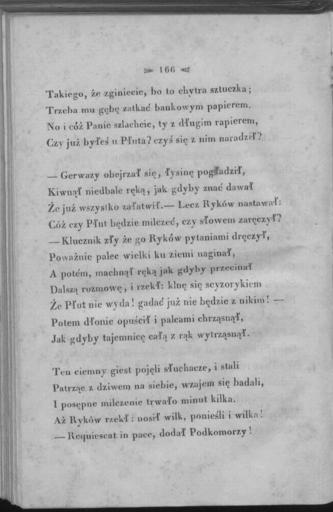 166
Takiego, że zginiecie, bo to chytra sztuczka;
Trzeba mu gębę zatkać bankowym papierem.
No i cóż Panie szlachcic, ty z długim rapierem,
Czy już byłeś u Płuta? czyś się z nim naradził?
— Gerwazy obejrzał się, łysinę pogładził,
Kiwnął niedbale ręką, jak gdyby znać dawał
Że już wszystko załatwił.— Lecz Ryków nastawał:
Cóż czy Płut będzie milczeć, czy słowem zaręczył?
— Klucznik zły że go Ryków pytaniami dręczył,
Poważnie palec wielki ku ziemi naginał,
A potém, machnął ręką jak gdyby przecinał
Dalszą rozmowę, i rzekł: klnę się scyzorykiem
Że Płut nie wyda! gadać już nie będzie z nikim! —
Potem dłonie opuścił i palcami chrząsnął,
Jak gdyby tajemnicę całą z rąk wytrząsnął.
Ten ciemny giest pojęli słuchacze, i stali
Patrząc z dziwem na siebie, wzajem się badali,
I posępne milczenie trwało minut kilka.
Aż Ryków rzekł: nosił wilk, ponieśli i wilka!
— Requiescat in pace, dodał Podkomorzy!